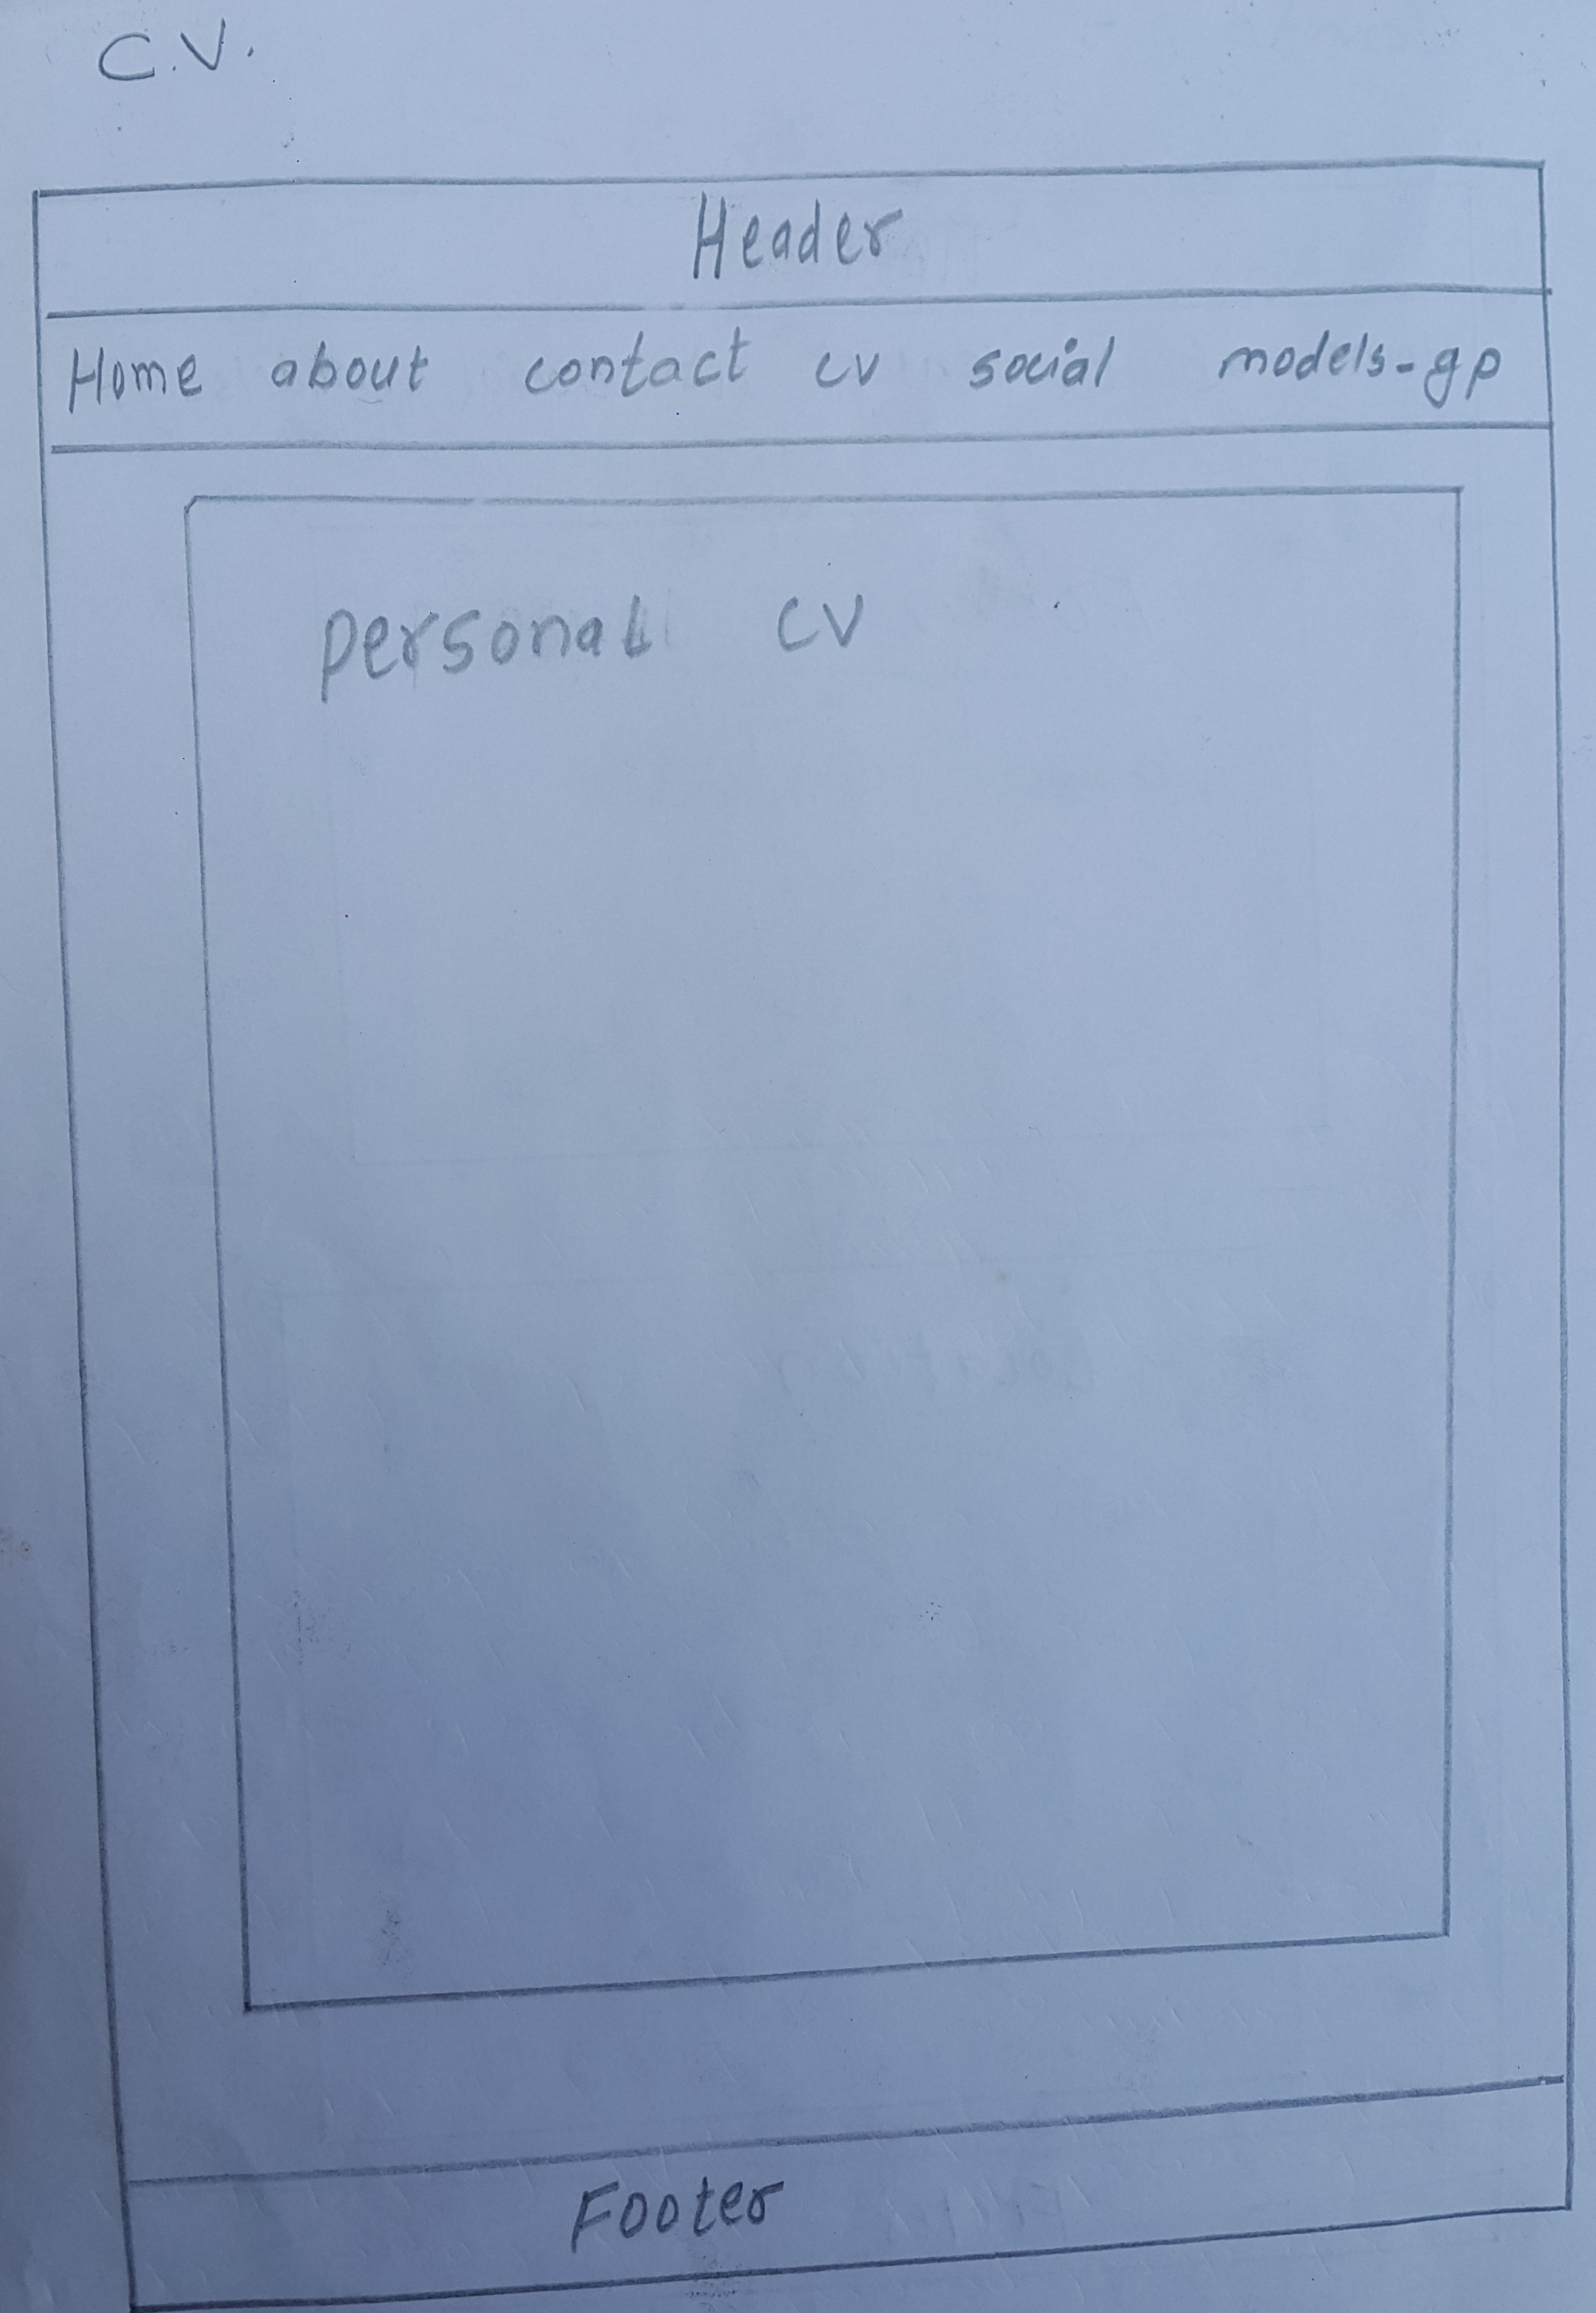 C.V.
Header
Home about contact cv social models-gp
personal CV
Footer